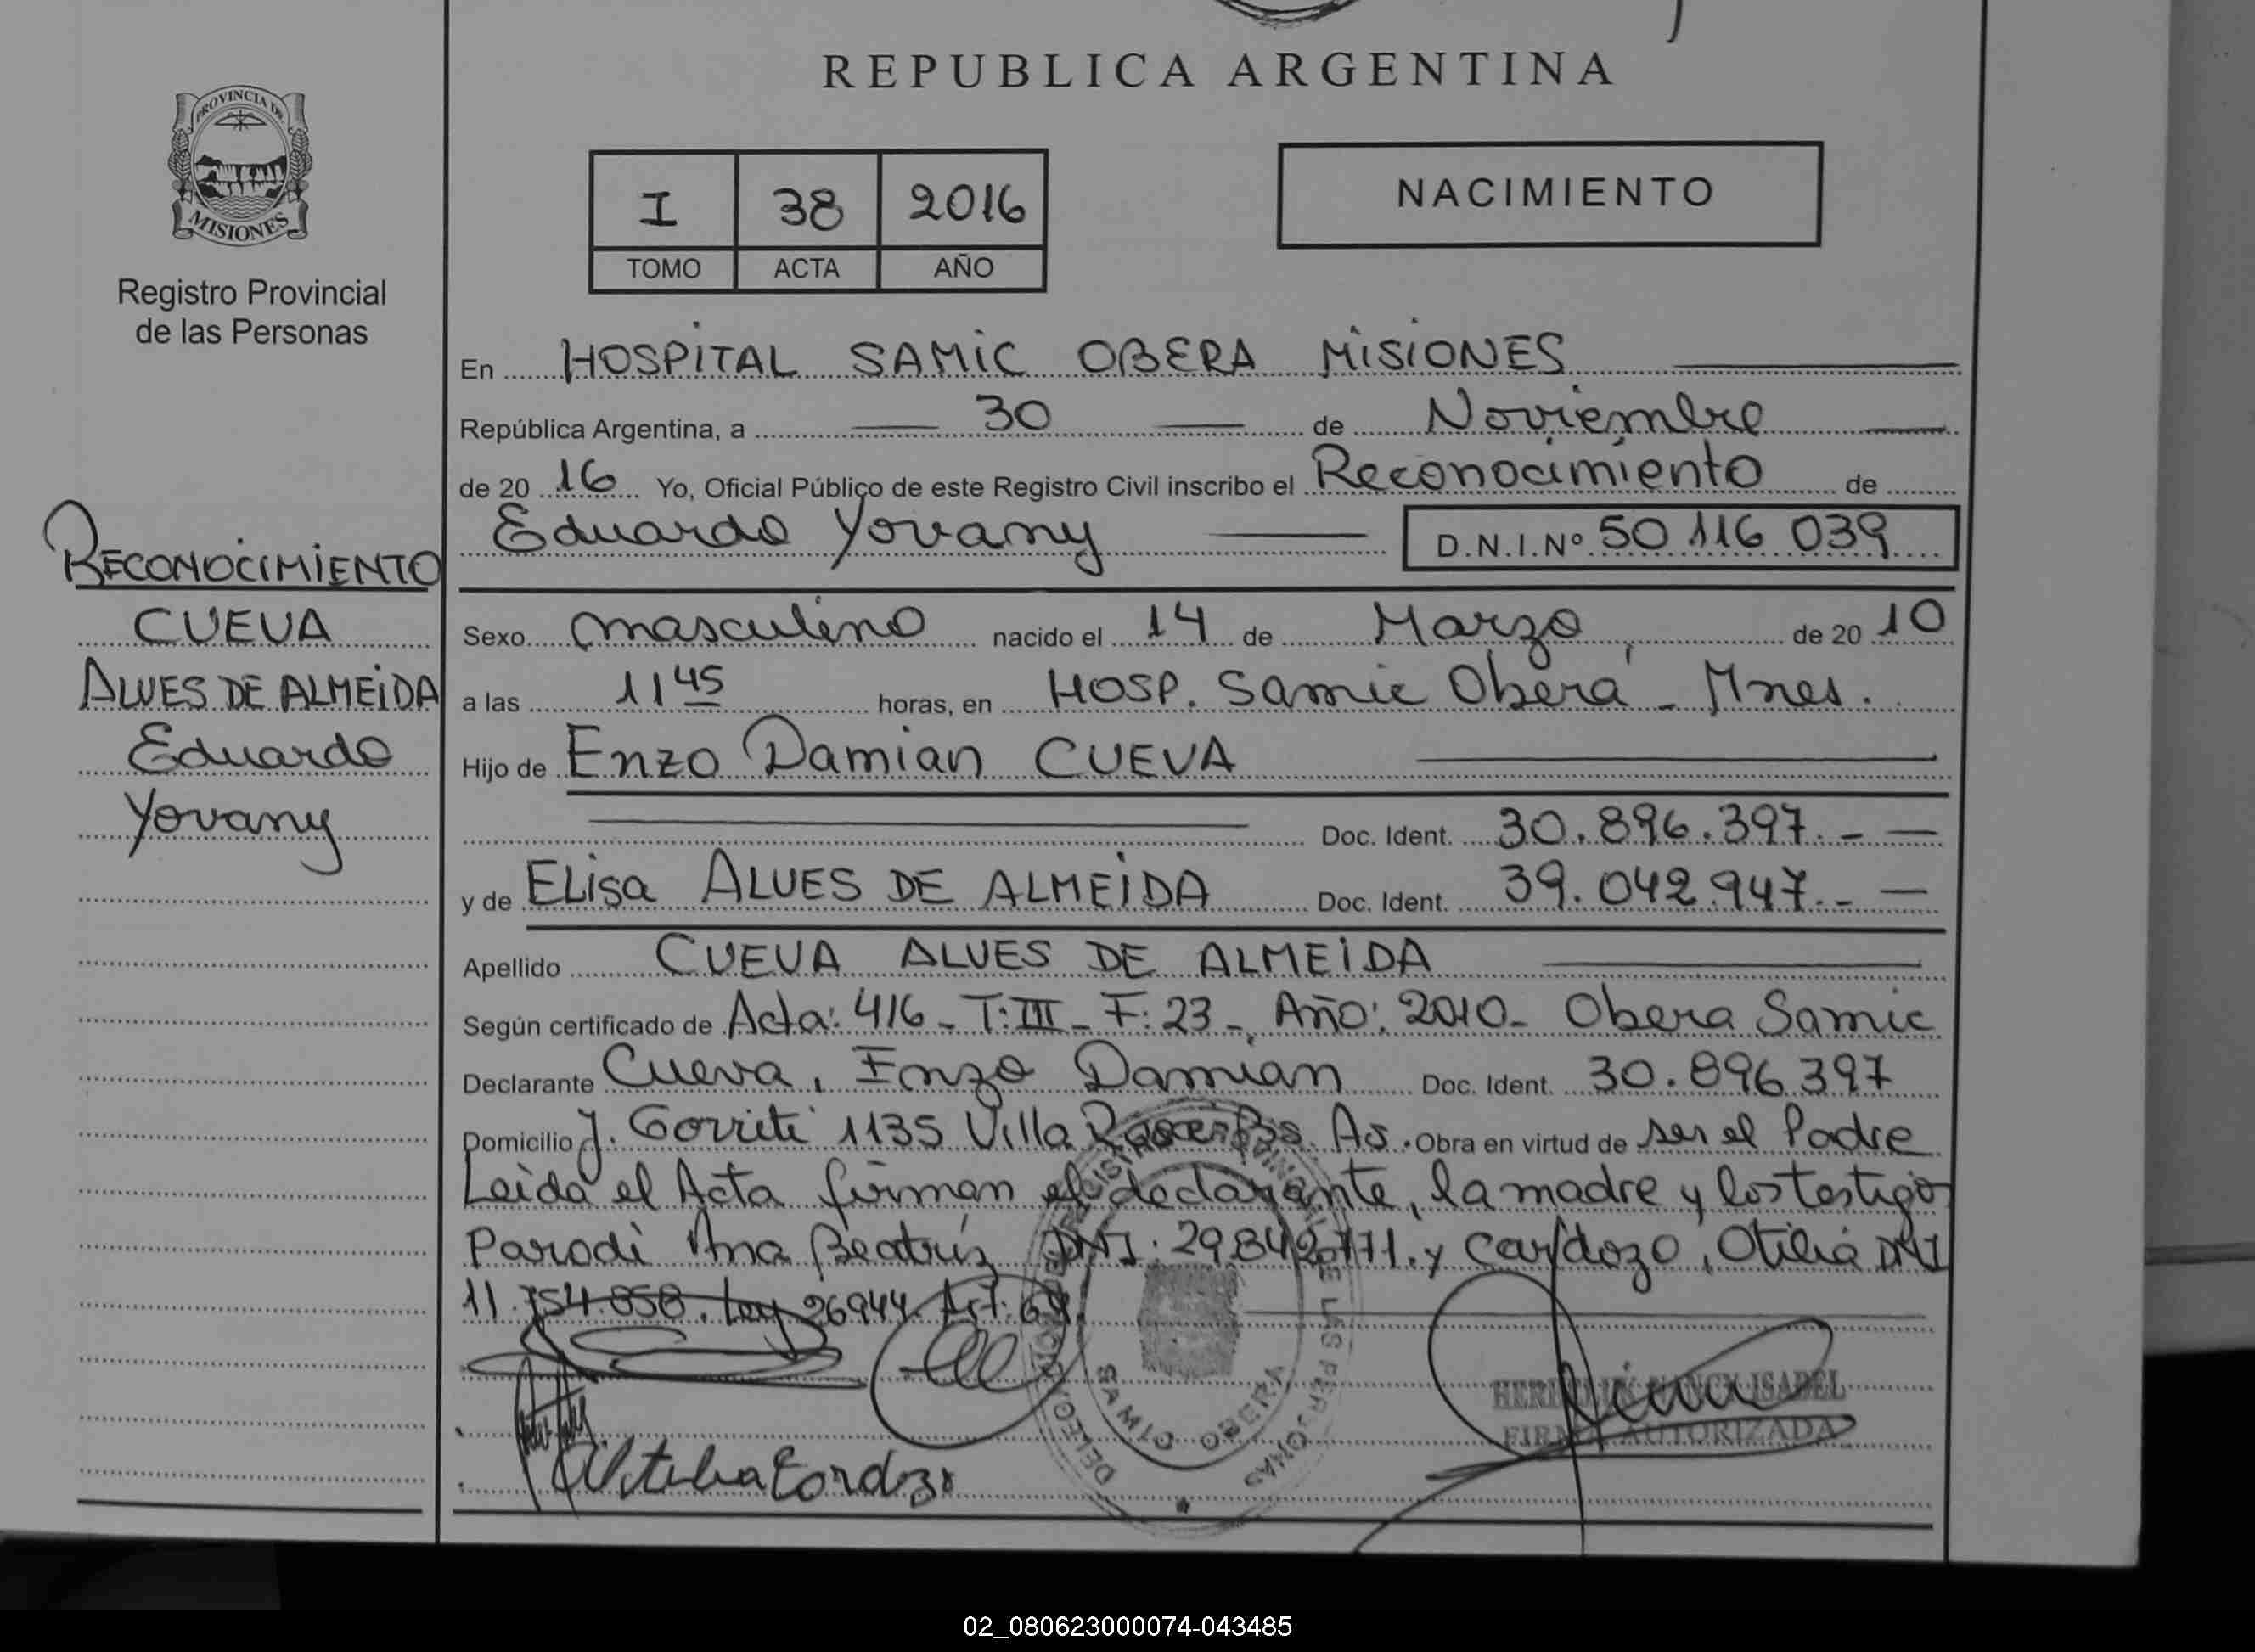 REPUBLICA ARGENTINA
PROVINCIA DE MISIONES
Registro Provincial
de las Personas
I 38 2016
TOMO ACTA AÑO
NACIMIENTO
En HOSPITAL SAMIC OBERA MISIONES
República Argentina, a 30 de Noviembre
de 20 16 Yo, Oficial Público de este Registro Civil inscribo el Reconocimiento de
Eduardo Yovany D.N.I.Nº 50 116 039
RECONOCIMIENTO
CUEVA
ALVES DE ALMEIDA
Eduardo
Yovany
Sexo masculino nacido el 14 de Marzo, de 20 10
a las 11 45 horas, en HOSP. Samic Oberá - Mnes.
Hijo de Enzo Damian CUEVA
Doc. Ident. 30.896.397.-
y de ELisa ALVES DE ALMEIDA Doc. Ident. 39.042.947.-
Apellido CUEVA ALVES DE ALMEIDA
Según certificado de Acta: 416 - T: III - F: 23 -, Año: 2010 - Obera Samic
Declarante Cueva, Enzo Damian Doc. Ident. 30.896.397
Domicilio J. Gorriti 1135 Villa Bs. As. Obra en virtud de ser el Padre
Leida el Acta firman el declarante, la madre y los testigos
Parodi Ana Beatriz DNI. y Cardozo, Otilia DNI
11. Ley 26944. Art.
SAMIC OBERA
NANCY ISABEL
FIRMA AUTORIZADA
02_080623000074-043485